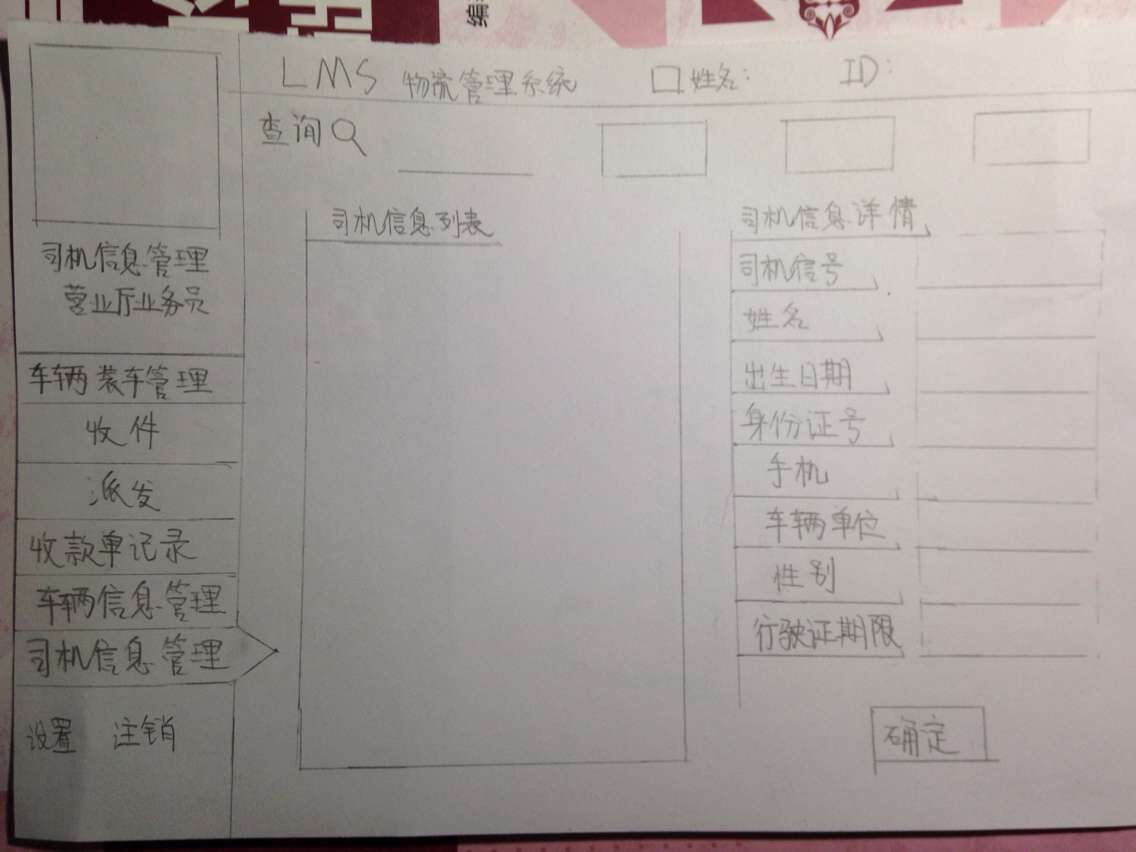 编
LMS 物流管理系统 姓名： ID：
查询
司机信息管理
营业厅业务员
车辆装车管理
收件
派发
收款单记录
车辆信息管理
司机信息管理
设置 注销
司机信息列表
司机信息详情
司机信号
姓名
出生日期
身份证号
手机
车辆单位
性别
行驶证期限
确定